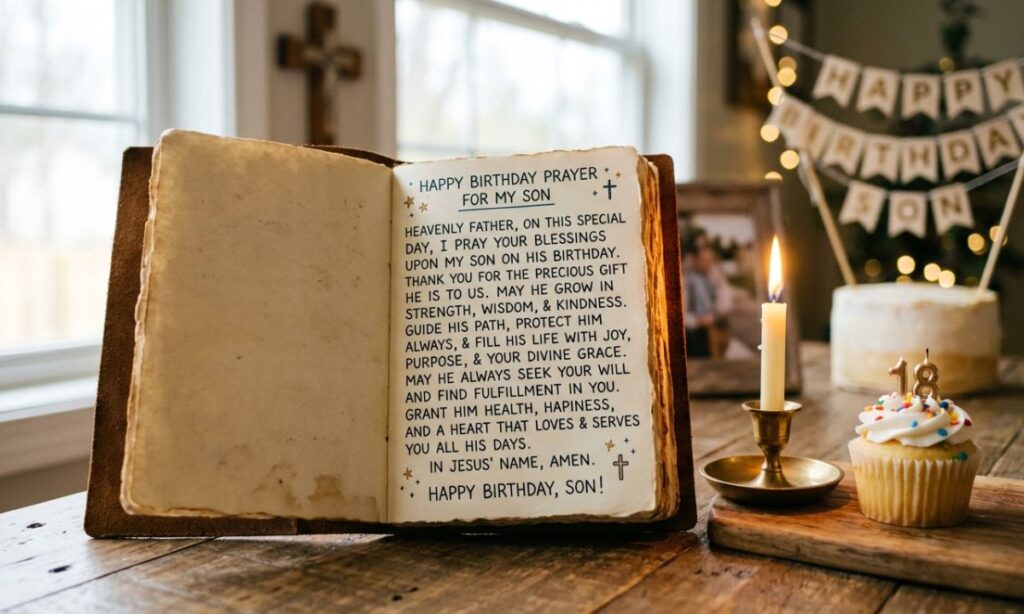 HAPPY BIRTHDAY PRAYER
FOR MY SON
HEAVENLY FATHER, ON THIS SPECIAL
DAY, I PRAY YOUR BLESSINGS
UPON MY SON ON HIS BIRTHDAY.
THANK YOU FOR THE PRECIOUS GIFT
HE IS TO US. MAY HE GROW IN
STRENGTH, WISDOM, & KINDNESS.
GUIDE HIS PATH, PROTECT HIM
ALWAYS, & FILL HIS LIFE WITH JOY,
PURPOSE, & YOUR DIVINE GRACE.
MAY HE ALWAYS SEEK YOUR WILL
AND FIND FULFILLMENT IN YOU.
GRANT HIM HEALTH, HAPINESS,
AND A HEART THAT LOVES & SERVES
YOU ALL HIS DAYS.
IN JESUS' NAME, AMEN.
HAPPY BIRTHDAY, SON!
HAPPY
BIRTHDAY
SON
18